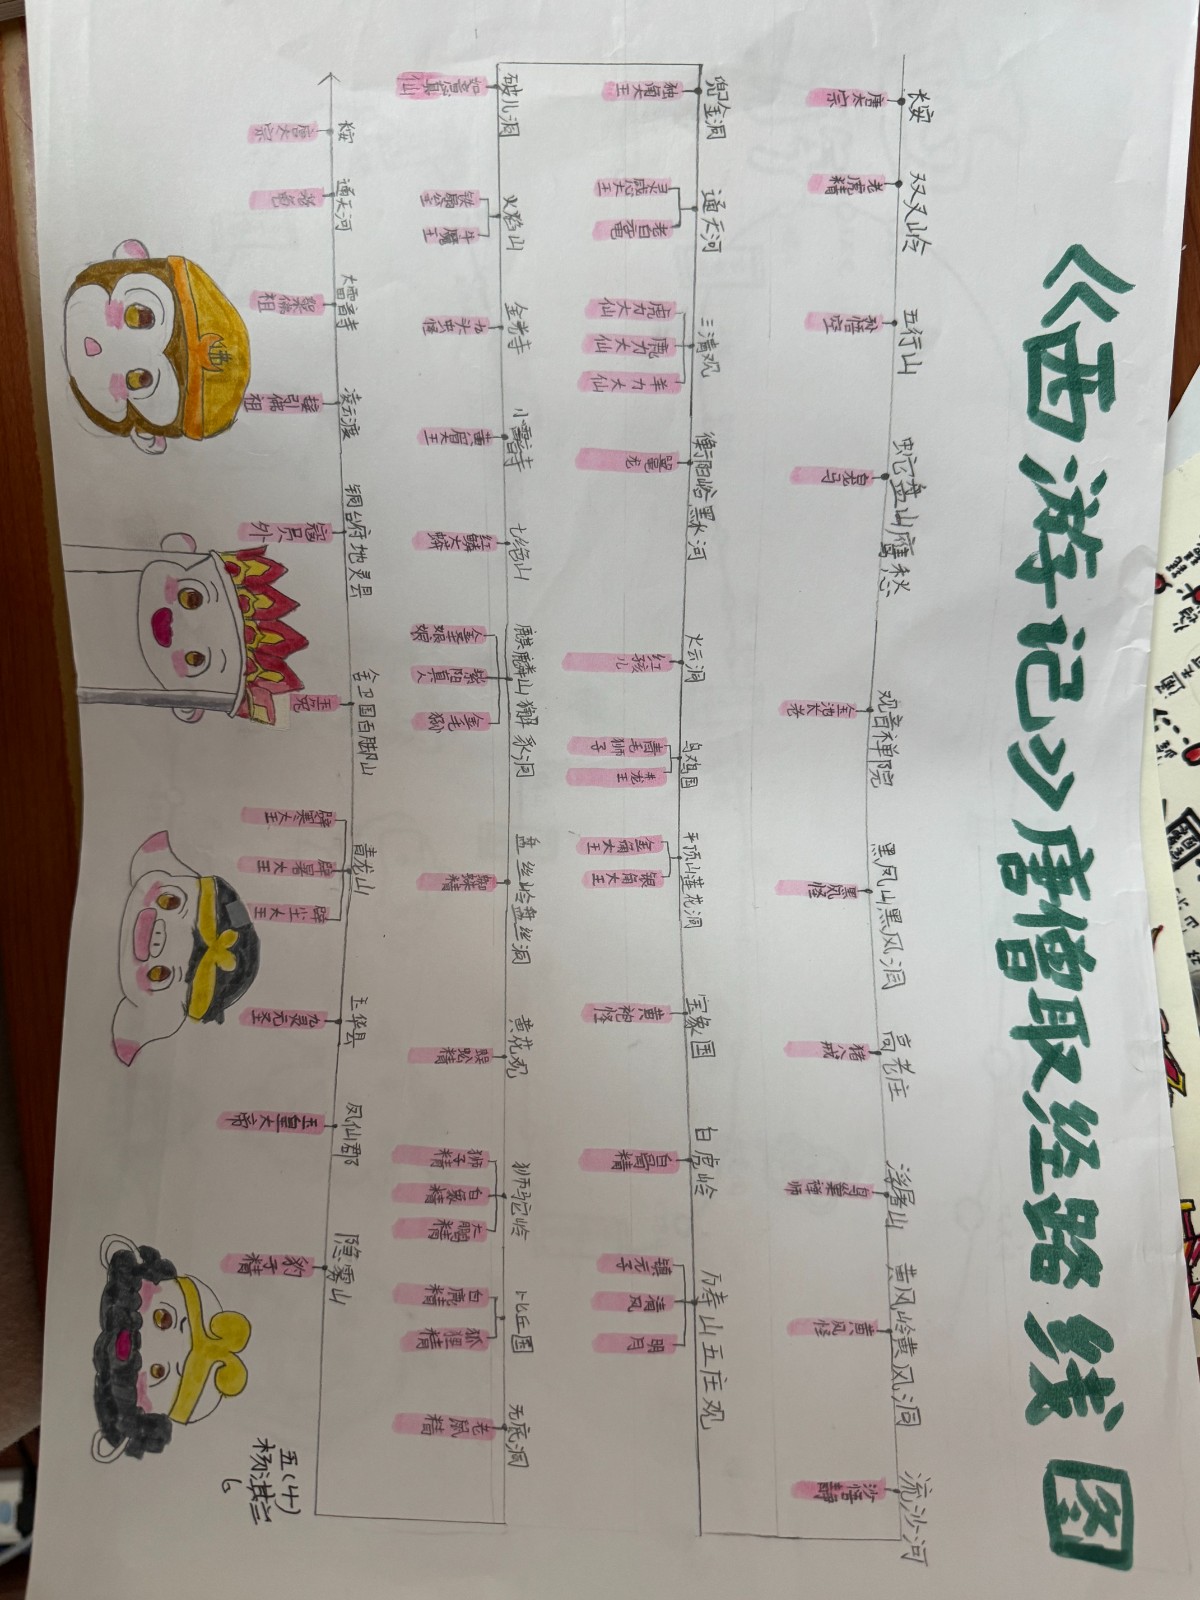 《西游记》唐僧取经路线图
长安 双叉岭 五行山 蛇盘山鹰愁 观音禅院 黑风山黑风洞 高老庄 浮屠山 黄风岭黄风洞 流沙河
唐太宗 老虎精 孙悟空 白龙马 金池长老 黑风怪 猪八戒 乌巢禅师 黄风怪 沙悟静
兜金洞 通天河 三清观 衡阳峪黑水河 火云洞 乌鸡国 平顶山莲花洞 宝象国 白虎岭 万寿山五庄观
独角大王 灵感大王 老白鼋 虎力大仙 鹿力大仙 羊力大仙 鼍龙 红孩儿 青毛狮子 井龙王 金角大王 银角大王 黄袍怪 白骨精 镇元子 清风 明月
破儿洞 火焰山 金光寺 小雷音寺 七绝山 麒麟山獬豸洞 盘丝岭盘丝洞 黄花观 狮驼岭 比丘国 无底洞
如意真仙 铁扇公主 牛魔王 九头虫怪 黄眉大王 红鳞大蟒 金圣娘娘 紫阳真人 金毛犼 蜘蛛精 蜈蚣精 狮子精 白象精 大鹏精 白鹿精 狐狸精 老鼠精
长安 通天河 大雷音寺 凌云渡 铜台府地灵县 舍卫国百脚山 青龙山 玉华县 凤仙郡 隐雾山
唐太宗 老龟 如来佛祖 接引佛祖 寇员外 玉兔 辟寒大王 辟暑大王 辟尘大王 九灵元圣 玉皇大帝 豹子精
五(4)
杨淇兰
6